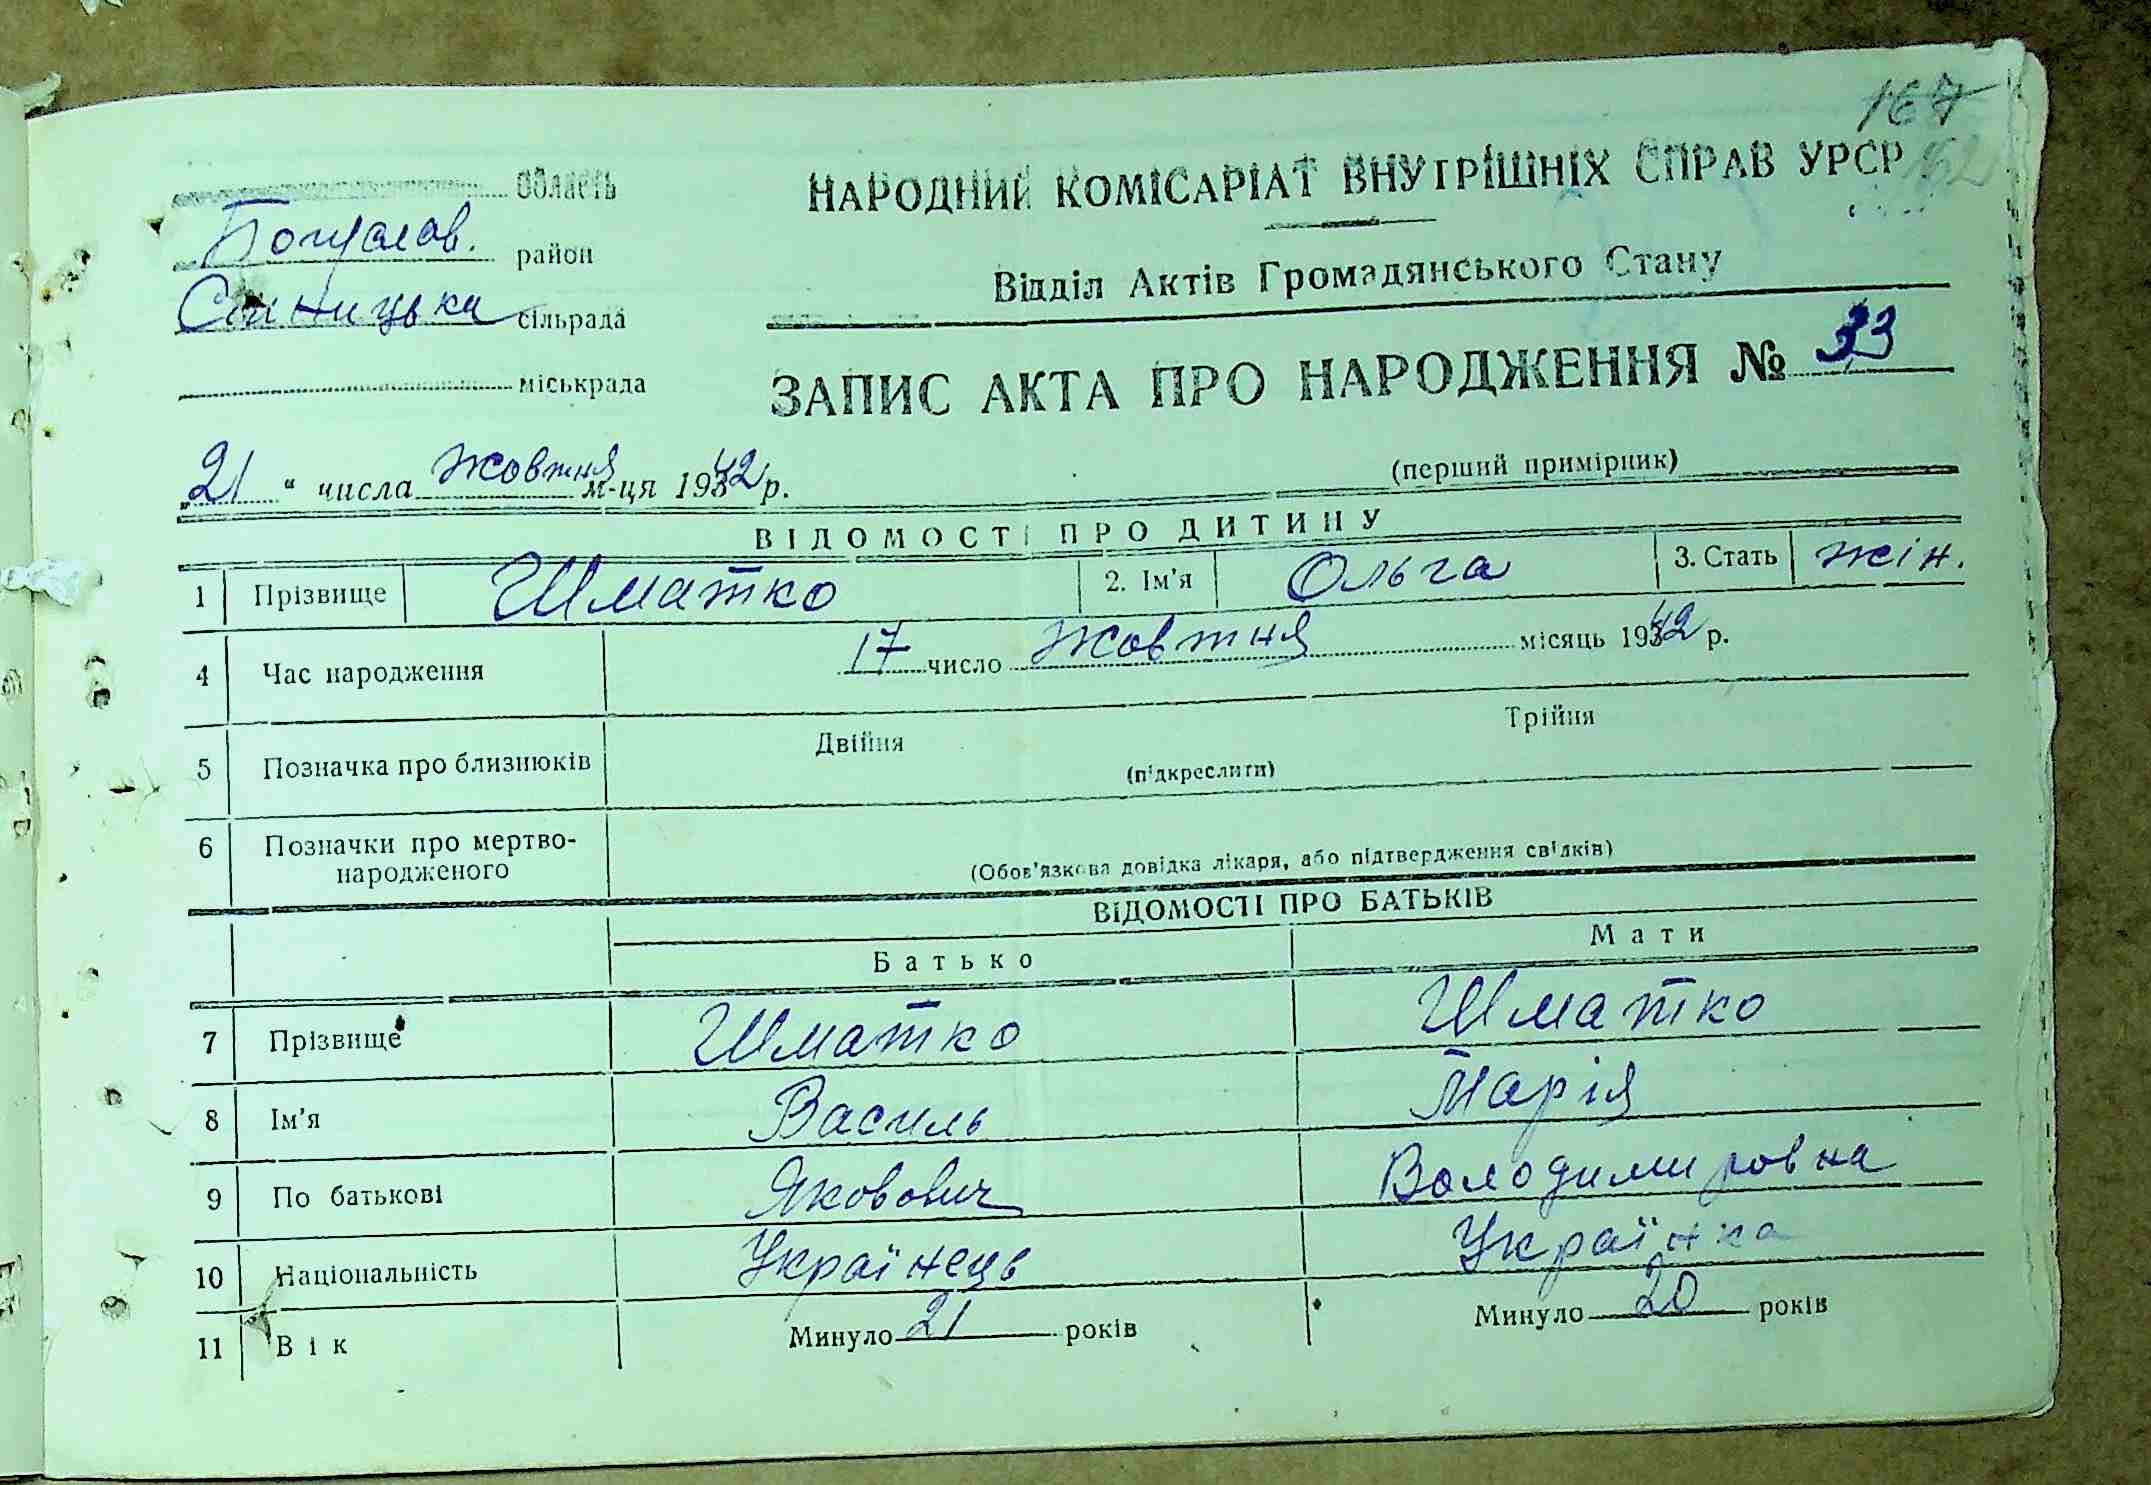 167
162
Область
НАРОДНИЙ КОМІСАРІАТ ВНУТРІШНІХ СПРАВ УРСР
Богуслав. район
Відділ Актів Громадянського Стану
Синицька сільрада
міськрада
ЗАПИС АКТА ПРО НАРОДЖЕННЯ № 33
„21“ числа жовтня м-ця 1942 р.
(перший примірник)
ВІДОМОСТІ ПРО ДИТИНУ
1 Прізвище Шматко 2. Ім'я Ольга 3. Стать жін.
4 Час народження 17 число жовтня місяць 1942 р.
5 Позначка про близнюків Двійня Трійня
(підкреслити)
6 Позначки про мертво-
народженого
(Обов'язкова довідка лікаря, або підтвердження свідків)
ВІДОМОСТІ ПРО БАТЬКІВ
Батько Мати
7 Прізвище Шматко Шматко
8 Ім'я Василь Марія
9 По батькові Якович Володимировна
10 Національність Українець Українка
11 Вік Минуло 21 років Минуло 20 років